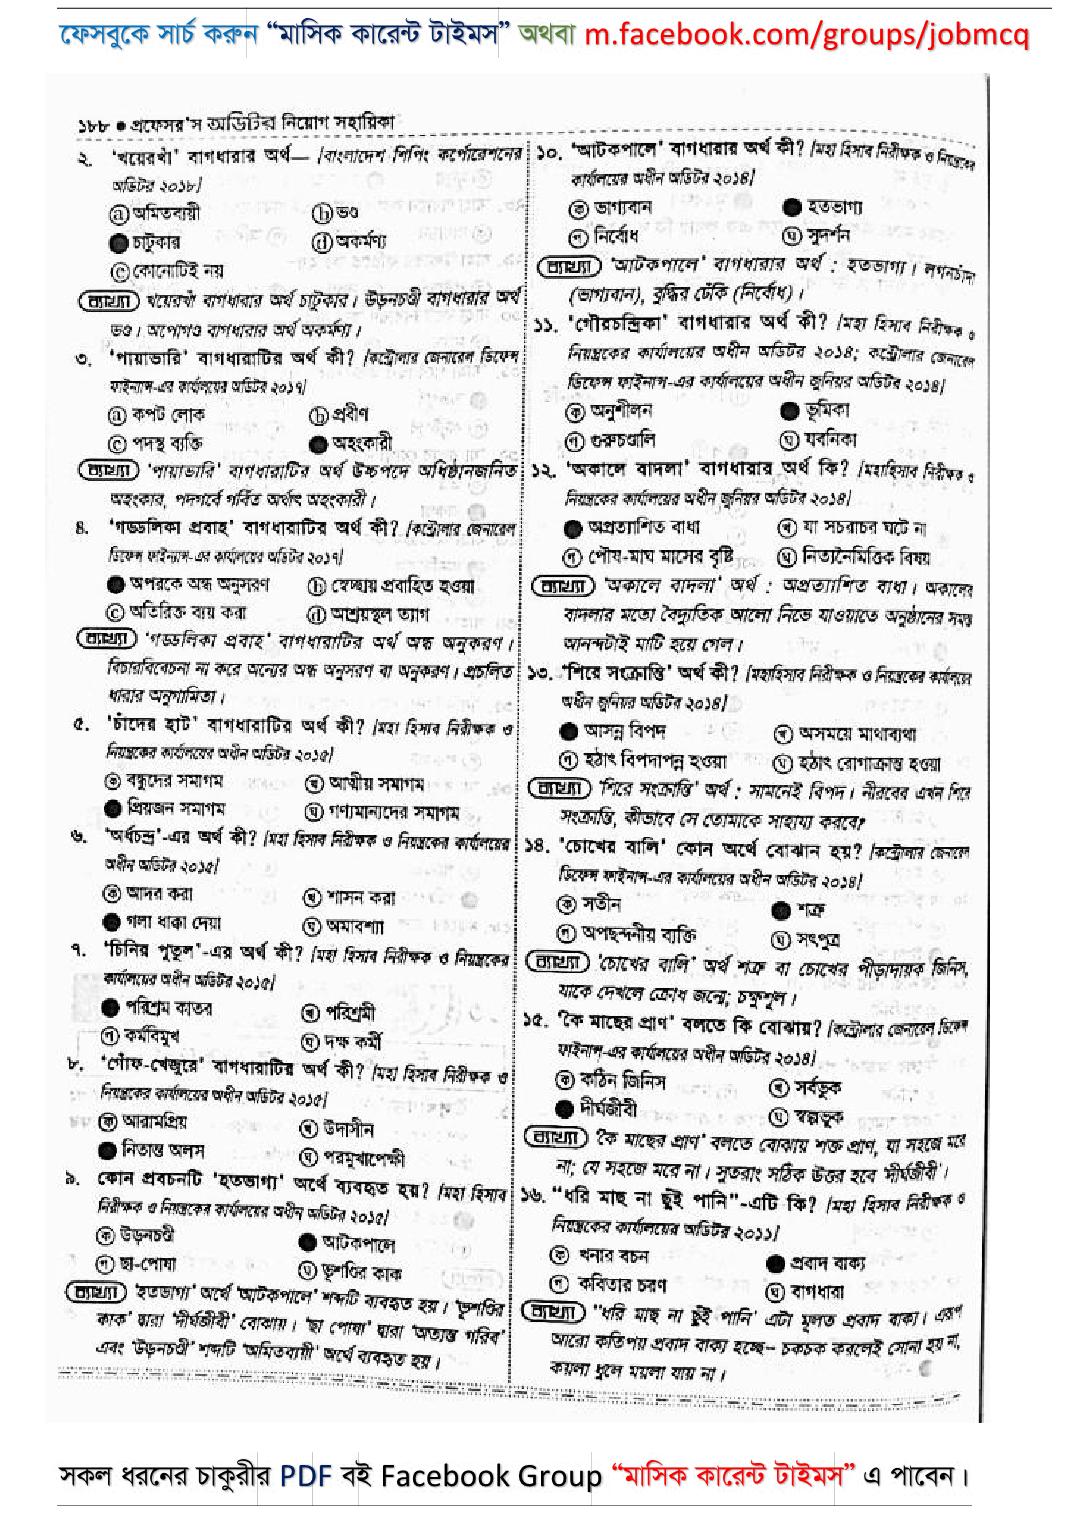 ফেসবুকে সার্চ করুন “মাসিক কারেন্ট টাইমস” অথবা m.facebook.com/groups/jobmcq
১৮৮ ● প্রফেসর'স অডিটর নিয়োগ সহায়িকা
২. ‘খয়েরখাঁ’ বাগধারার অর্থ— [বাংলাদেশ শিপিং কর্পোরেশনের
অডিটর ২০১৮]
ⓐ অমিতব্যয়ী ⓑ ভণ্ড
● চাটুকার ⓓ অকর্মণ্য
ⓔ কোনোটিই নয়
ব্যাখ্যা খয়েরখাঁ বাগধারার অর্থ চাটুকার। উড়নচণ্ডী বাগধারার অর্থ
ভণ্ড। অপোগণ্ড বাগধারার অর্থ অকর্মণ্য।
৩. ‘পায়াভারি’ বাগধারাটির অর্থ কী? [কন্ট্রোলার জেনারেল ডিফেন্স
ফাইনান্স-এর কার্যালয়ের অডিটর ২০১৭]
ⓐ কপট লোক ⓑ প্রবীণ
ⓒ পদস্থ ব্যক্তি ● অহংকারী
ব্যাখ্যা ‘পায়াভারি’ বাগধারাটির অর্থ উচ্চপদে অধিষ্ঠানজনিত
অহংকার, পদগর্বে গর্বিত অর্থাৎ অহংকারী।
৪. ‘গড্ডলিকা প্রবাহ’ বাগধারাটির অর্থ কী? [কন্ট্রোলার জেনারেল
ডিফেন্স ফাইনান্স-এর কার্যালয়ের অডিটর ২০১৭]
● অপরকে অন্ধ অনুসরণ ⓑ স্বেচ্ছায় প্রবাহিত হওয়া
ⓒ অতিরিক্ত ব্যয় করা ⓓ আশ্রয়স্থল ত্যাগ
ব্যাখ্যা ‘গড্ডলিকা প্রবাহ’ বাগধারাটির অর্থ অন্ধ অনুকরণ।
বিচারবিবেচনা না করে অন্যের অন্ধ অনুসরণ বা অনুকরণ। প্রচলিত
ধারার অনুগামিতা।
৫. ‘চাঁদের হাট’ বাগধারাটির অর্থ কী? [মহা হিসাব নিরীক্ষক ও
নিয়ন্ত্রকের কার্যালয়ের অধীন অডিটর ২০১৫]
ⓚ বন্ধুদের সমাগম ⓚ আত্মীয় সমাগম
● প্রিয়জন সমাগম ঘ গণ্যমান্যদের সমাগম
৬. ‘অর্ধচন্দ্র’-এর অর্থ কী? [মহা হিসাব নিরীক্ষক ও নিয়ন্ত্রকের কার্যালয়ের
অধীন অডিটর ২০১৫]
ক আদর করা খ শাসন করা
● গলা ধাক্কা দেয়া ঘ অমাবশ্যা
৭. ‘চিনির পুতুল’-এর অর্থ কী? [মহা হিসাব নিরীক্ষক ও নিয়ন্ত্রকের
কার্যালয়ের অধীন অডিটর ২০১৫]
● পরিশ্রম কাতর খ পরিশ্রমী
গ কর্মবিমুখ ঘ দক্ষ কর্মী
৮. ‘গোঁফ-খেজুরে’ বাগধারাটির অর্থ কী? [মহা হিসাব নিরীক্ষক ও
নিয়ন্ত্রকের কার্যালয়ের অধীন অডিটর ২০১৫]
ক আরামপ্রিয় খ উদাসীন
● নিতান্ত অলস ঘ পরমুখাপেক্ষী
৯. কোন প্রবচনটি ‘হতভাগা’ অর্থে ব্যবহৃত হয়? [মহা হিসাব
নিরীক্ষক ও নিয়ন্ত্রকের কার্যালয়ের অধীন অডিটর ২০১৫]
ক উড়নচণ্ডী ● আটকপালে
গ ছা-পোষা ঘ ভূশণ্ডির কাক
ব্যাখ্যা ‘হতভাগা’ অর্থে ‘আটকপালে’ শব্দটি ব্যবহৃত হয়। ‘ভূশণ্ডির
কাক’ দ্বারা ‘দীর্ঘজীবী’ বোঝায়। ‘ছা পোষা’ দ্বারা ‘অত্যন্ত গরিব’
এবং ‘উড়নচণ্ডী’ শব্দটি ‘অমিতব্যয়ী’ অর্থে ব্যবহৃত হয়।
১০. ‘আটকপালে’ বাগধারার অর্থ কী? [মহা হিসাব নিরীক্ষক ও নিয়ন্ত্রকের
কার্যালয়ের অধীন অডিটর ২০১৪]
ক ভাগ্যবান ● হতভাগ্য
গ নির্বোধ ঘ সুদর্শন
ব্যাখ্যা ‘আটকপালে’ বাগধারার অর্থ : হতভাগা। লগনচাঁদা
(ভাগ্যবান), বুদ্ধির ঢেঁকি (নির্বোধ)।
১১. ‘গৌরচন্দ্রিকা’ বাগধারার অর্থ কী? [মহা হিসাব নিরীক্ষক ও
নিয়ন্ত্রকের কার্যালয়ের অধীন অডিটর ২০১৪; কন্ট্রোলার জেনারেল
ডিফেন্স ফাইনান্স-এর কার্যালয়ের অধীন জুনিয়র অডিটর ২০১৪]
ক অনুশীলন ● ভূমিকা
গ গুরুচণ্ডালি ঘ যবনিকা
১২. ‘অকালে বাদলা’ বাগধারার অর্থ কি? [মহাহিসাব নিরীক্ষক ও
নিয়ন্ত্রকের কার্যালয়ের অধীন জুনিয়র অডিটর ২০১৪]
● অপ্রত্যাশিত বাধা খ যা সচরাচর ঘটে না
গ পৌষ-মাঘ মাসের বৃষ্টি ঘ নিত্যনৈমিত্তিক বিষয়
ব্যাখ্যা ‘অকালে বাদলা’ অর্থ : অপ্রত্যাশিত বাধা। অকালের
বাদলার মতো বৈদ্যুতিক আলো নিভে যাওয়াতে অনুষ্ঠানের সমস্ত
আনন্দটাই মাটি হয়ে গেল।
১৩. ‘শিরে সংক্রান্তি’ অর্থ কী? [মহাহিসাব নিরীক্ষক ও নিয়ন্ত্রকের কার্যালয়ের
অধীন জুনিয়র অডিটর ২০১৪]
● আসন্ন বিপদ খ অসময়ে মাথাব্যথা
গ হঠাৎ বিপদাপন্ন হওয়া ঘ হঠাৎ রোগাক্রান্ত হওয়া
ব্যাখ্যা ‘শিরে সংক্রান্তি’ অর্থ : সামনেই বিপদ। নীরবের এখন শিরে
সংক্রান্তি, কীভাবে সে তোমাকে সাহায্য করবে?
১৪. ‘চোখের বালি’ কোন অর্থে বোঝান হয়? [কন্ট্রোলার জেনারেল
ডিফেন্স ফাইনান্স-এর কার্যালয়ের অধীন অডিটর ২০১৪]
ক সতীন ● শত্রু
গ অপছন্দনীয় ব্যক্তি ঘ সৎপুত্র
ব্যাখ্যা ‘চোখের বালি’ অর্থ শত্রু বা চোখের পীড়াদায়ক জিনিস,
যাকে দেখলে ক্রোধ জন্মে; চক্ষুশূল।
১৫. ‘কৈ মাছের প্রাণ’ বলতে কি বোঝায়? [কন্ট্রোলার জেনারেল ডিফেন্স
ফাইনান্স-এর কার্যালয়ের অধীন অডিটর ২০১৪]
ক কঠিন জিনিস খ সর্বভুক
● দীর্ঘজীবী ঘ স্বল্পভুক
ব্যাখ্যা ‘কৈ মাছের প্রাণ’ বলতে বোঝায় শক্ত প্রাণ, যা সহজে মরে
না; যে সহজে মরে না। সুতরাং সঠিক উত্তর হবে ‘দীর্ঘজীবী’।
১৬. “ধরি মাছ না ছুঁই পানি”-এটি কি? [মহা হিসাব নিরীক্ষক ও
নিয়ন্ত্রকের কার্যালয়ের অধীন অডিটর ২০১১]
ক খনার বচন ● প্রবাদ বাক্য
গ কবিতার চরণ ঘ বাগধারা
ব্যাখ্যা “ধরি মাছ না ছুঁই পানি’ এটা মূলত প্রবাদ বাক্য। এরূপ
আরো কতিপয় প্রবাদ বাক্য হচ্ছে– চকচক করলেই সোনা হয় না,
কয়লা ধুলে ময়লা যায় না।
সকল ধরনের চাকুরীর PDF বই Facebook Group “মাসিক কারেন্ট টাইমস” এ পাবেন।